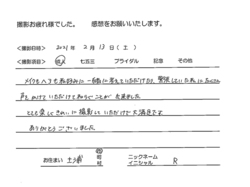 撮影お疲れ様でした。 感想をお願いいたします。
<撮影日時> 2021年 2月 13日(土)
<撮影項目> 成人 七五三 ブライダル 記念 その他
メイクもヘアもお好みに一緒に考えていただけたり、緊張していた私に
声をかけていただけて和らぐことが出来ました
とても楽しくきれいに撮影していただけて大満足です
ありがとうございました
お住まい 土浦 市 町 村 ニックネーム イニシャル R